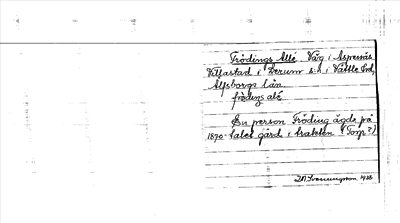 Frödings Allé. Väg i Aspenäs
Villastad i Lerum s:n i Vättle hd,
Älfsborgs län.
frödings alé
En person Fröding ägde på
1890-talet gård i trakten (Torp?)
D.N. Svenungsson 1928